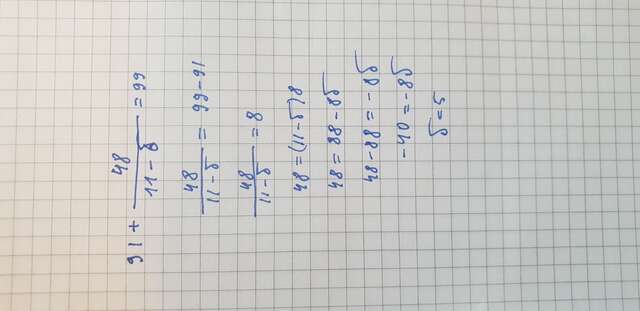 91 + 48/(11 - б) = 99
48/(11 - б) = 99 - 91
48/(11 - б) = 8
48 = (11 - б)8
48 = 88 - 8б
48 - 88 = - 8б
- 40 = - 8б
б = 5